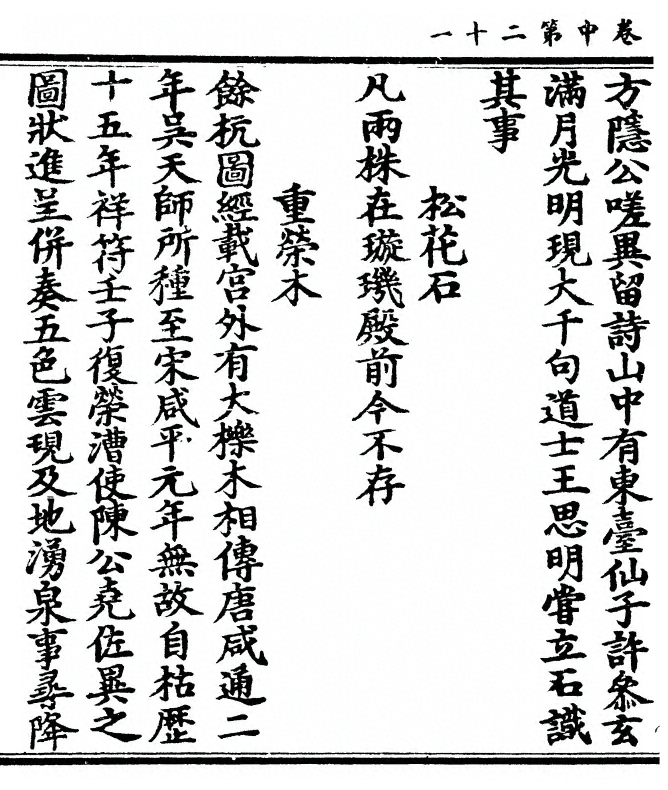 卷中第二十一
方隱公嗟異留詩山中有東臺仙子許叅玄
滿月光明現大千句道士王思明嘗立石識
其事
松花石
凡兩株在璇璣殿前今不存
重榮木
餘杭圖經載宮外有大櫟木相傳唐咸通二
年吳天師所種至宋咸平元年無故自枯歷
十五年祥符壬子復榮漕使陳公堯佐異之
圖狀進呈併奏五色雲現及地湧泉事尋降